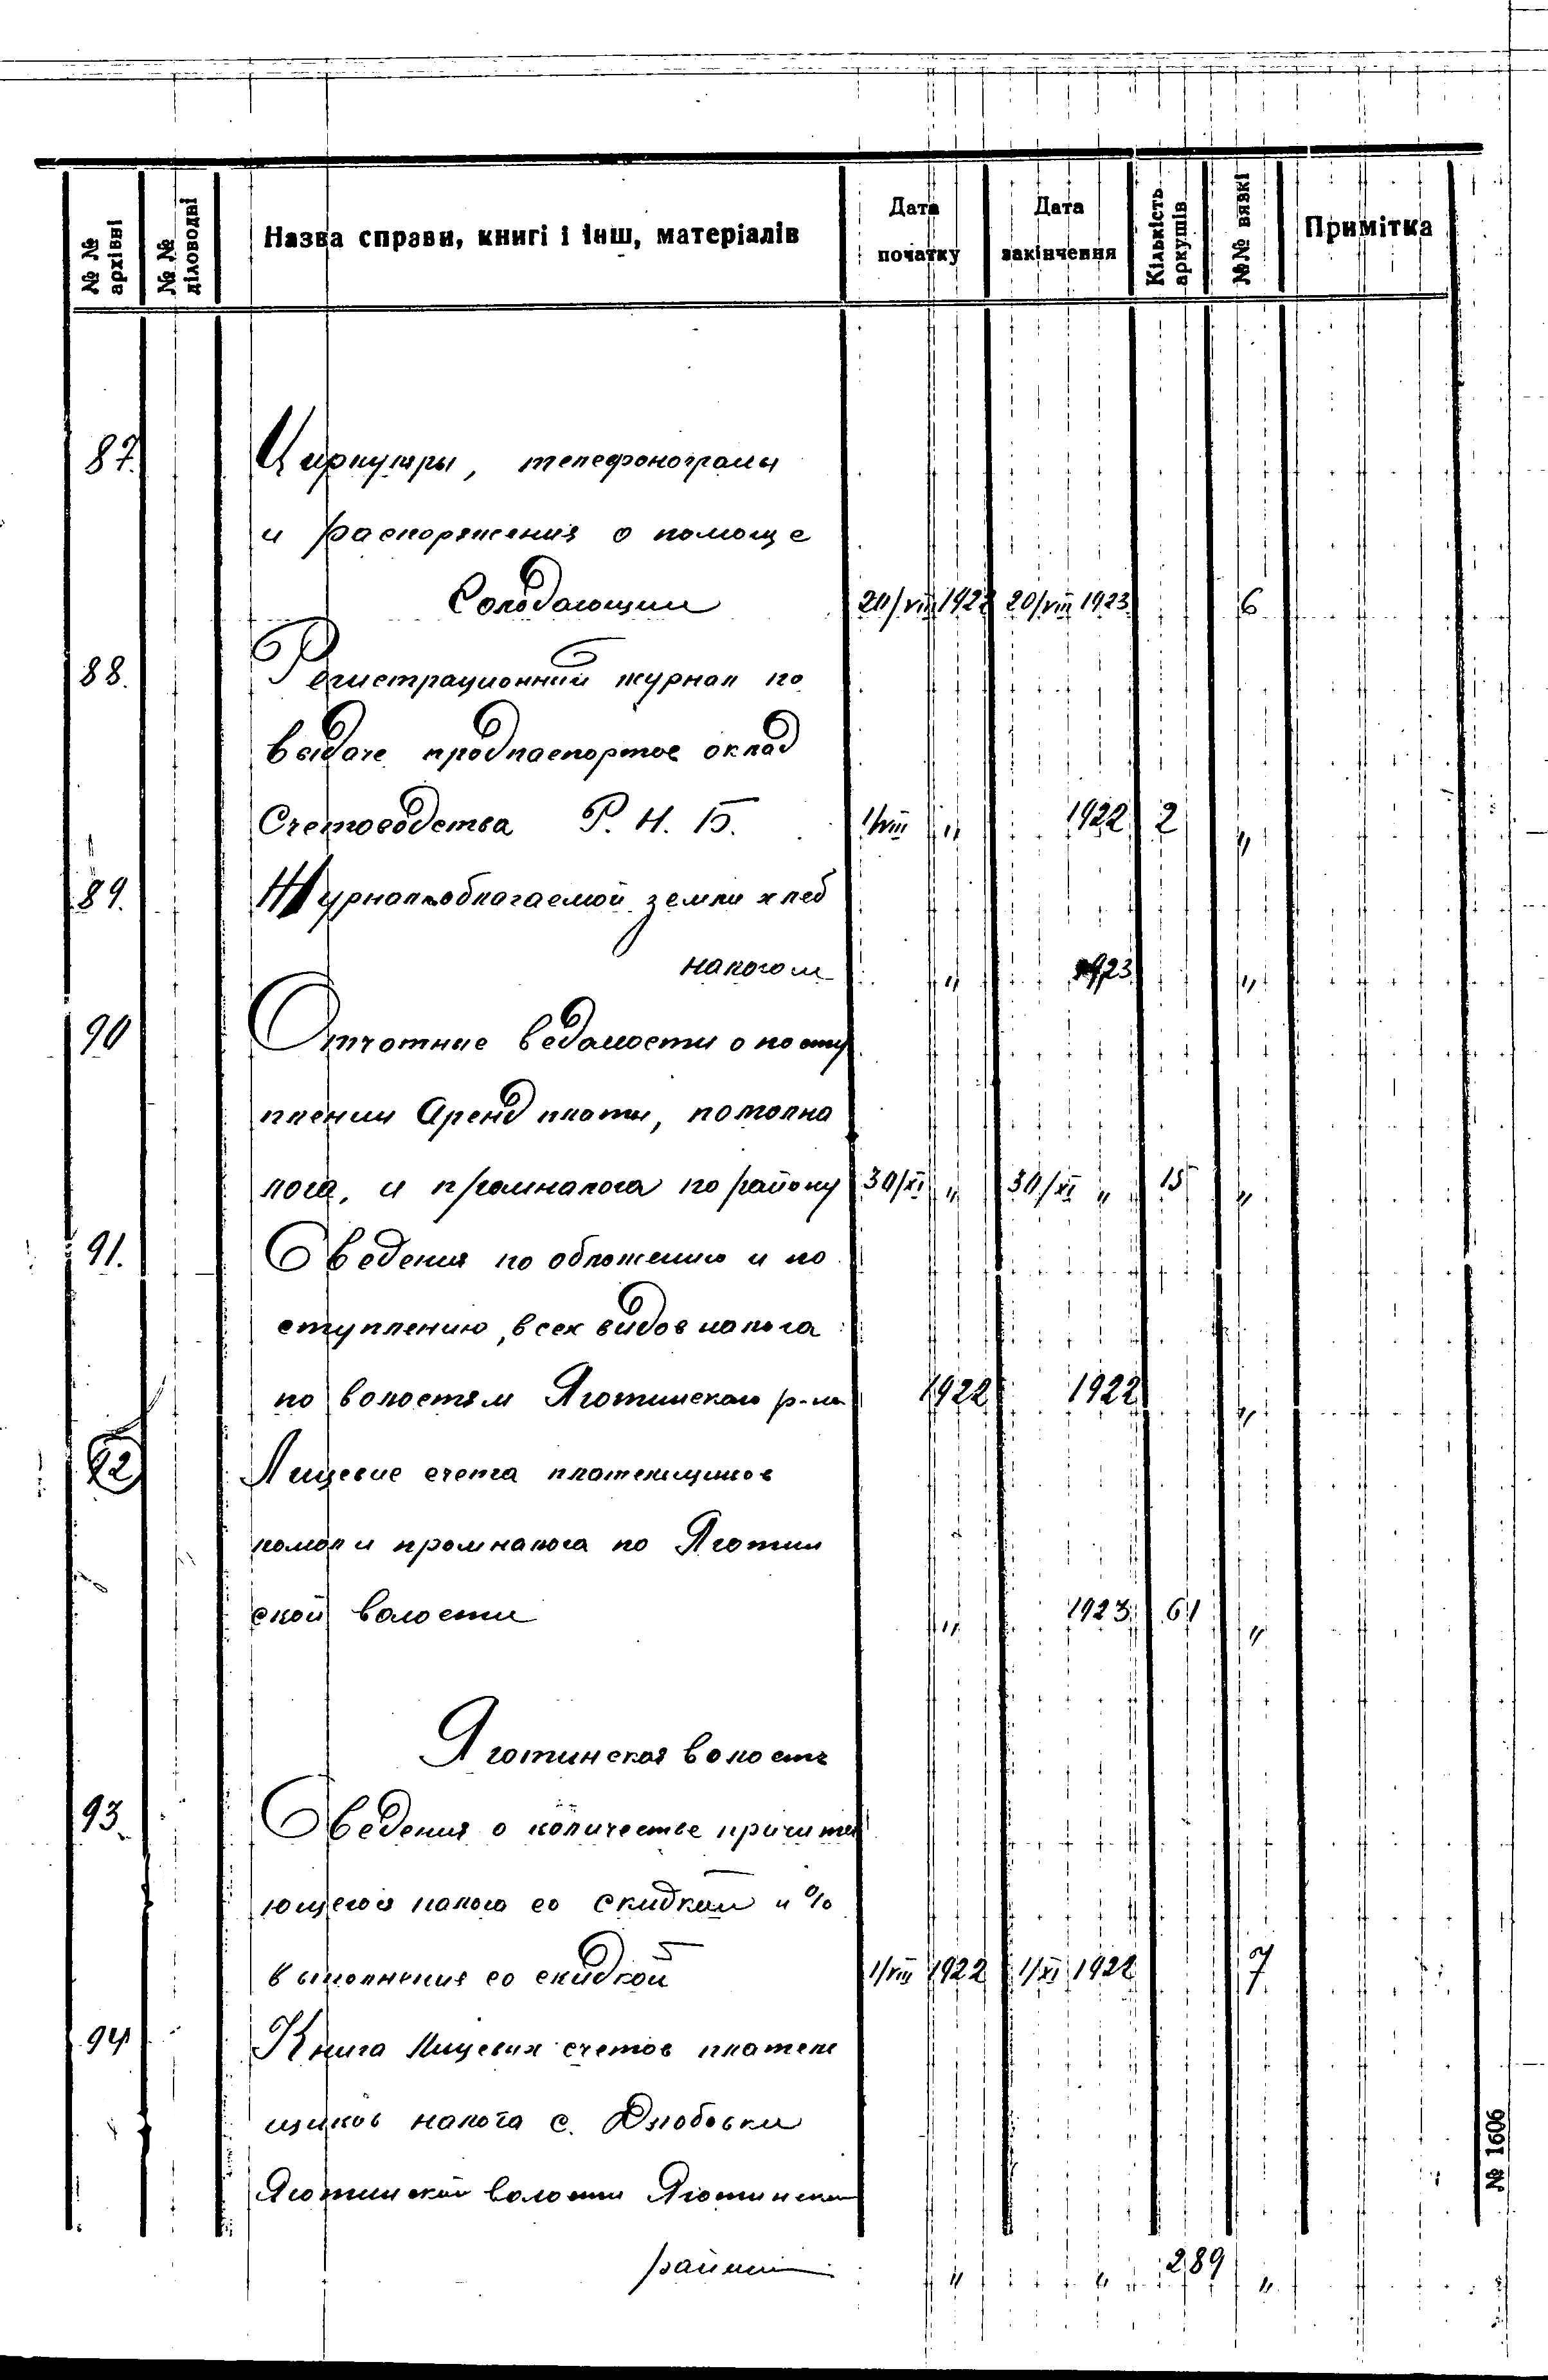 № № архівні
№ № діловодні
Назва справи, книгі і інш, матеріалів
Дата початку
Дата закінчення
Кількість аркушів
№№ вязкі
Примітка
87. Циркуляры, телефонограмы
и распоряжения о помоще
Голодающим 20/VIII 1922 20/VIII 1923 6
88. Регистрационний журнал по
выдаче продпаспортов оклад
Счетоводства Р. Н. Б. 1/VIII " 1922 2 "
89. Журнал облагаемой земли хлеб
налогом " 1923 "
90 Отчотние ведомости о посту
плении Аренд платы, потонна
лога, и промналога по району 30/XI " 30/XI " 15 "
91. Сведения по обложению и по
ступлению, всех видов налога
по волостям Яготинского р-на 1922 1922 "
92 Лицевие счета плательщиков
помол и промналога по Яготин
ской волости " 1923 61 "
Яготинская волость
93. Сведения о количестве причита
ющегося налога со скидкой и %
выполнения со скидкой 1/VIII 1922 1/XI 1922 7
94 Книга Лицевих счетов платель
щиков налога с.
Яготинской волости Яготинского
района " " 289 "
№ 1606